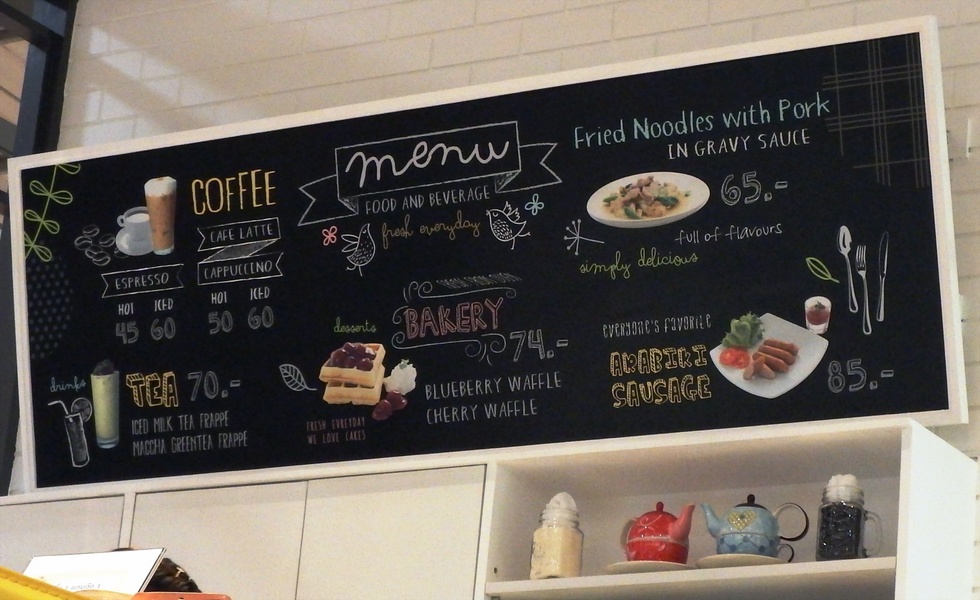 COFFEE
CAFE LATTE
CAPPUCCINO
ESPRESSO
HOT ICED
45 60
HOT ICED
50 60
drinks
TEA 70.-
ICED MILK TEA FRAPPE
MACCHA GREENTEA FRAPPE
menu
FOOD AND BEVERAGE
fresh everyday
desserts
BAKERY
74.-
BLUEBERRY WAFFLE
CHERRY WAFFLE
FRESH EVERYDAY
WE LOVE CAKES
Fried Noodles with Pork
IN GRAVY SAUCE
65.-
full of flavours
simply delicious
everyone's favorite
ARABIKI
SAUSAGE
85.-